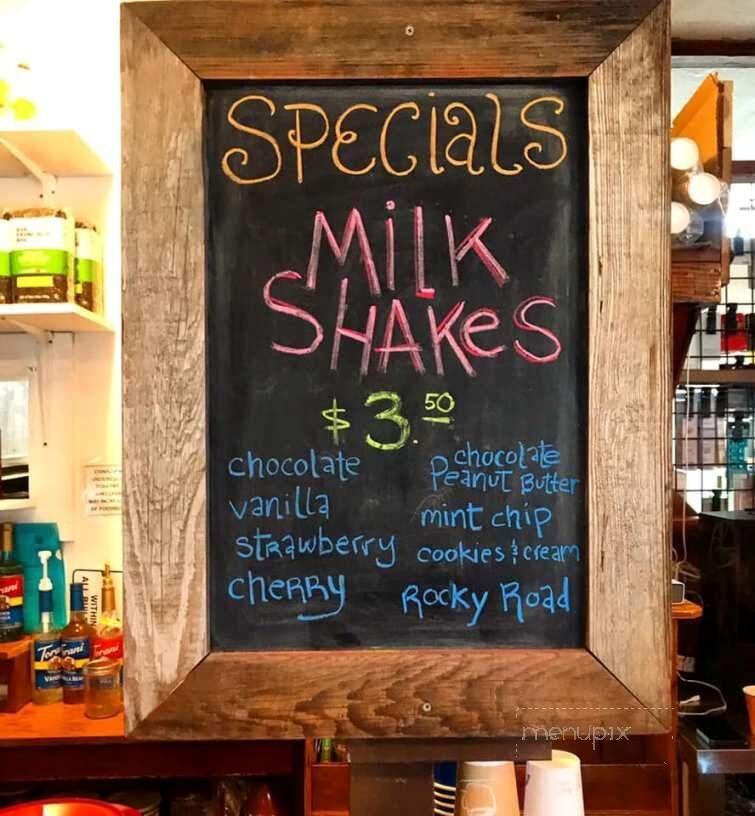 SPECiaLS
MiLK
SHAKeS
$3.50
chocolate
vanilla
strawberry
cherry
chocolate
Peanut Butter
mint chip
cookies & cream
Rocky Road
Torani
Torani
Torani
menupix